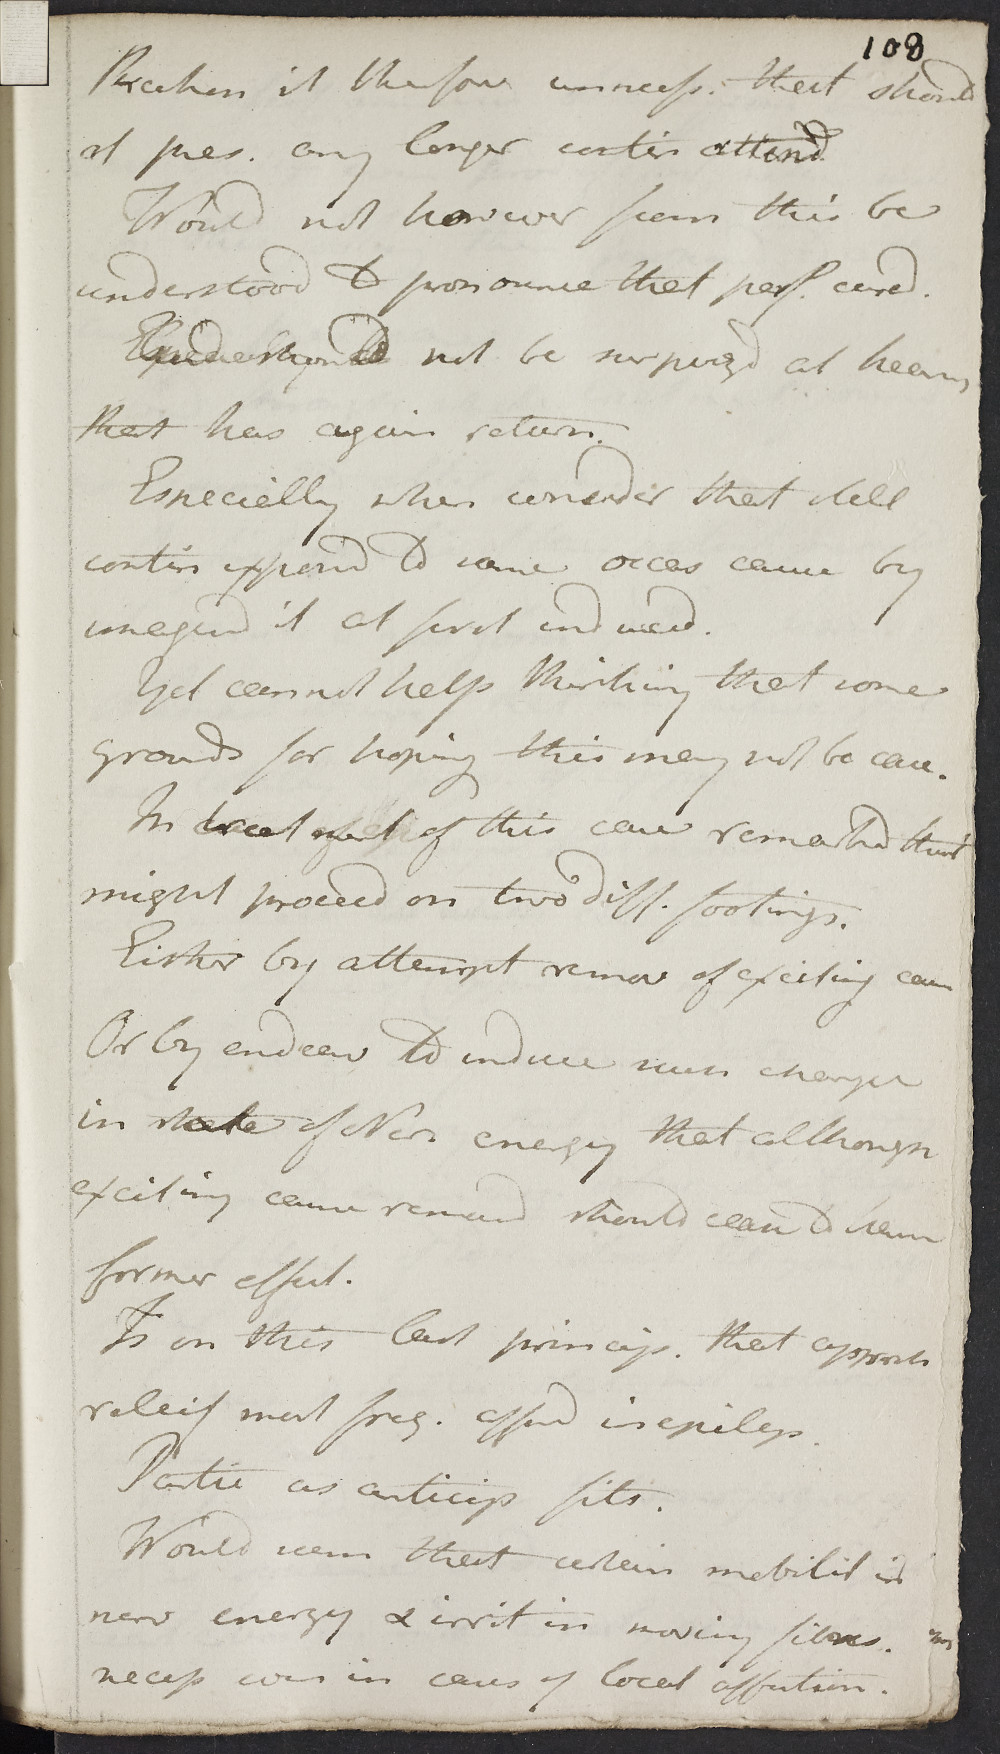 108
Reckon it therefore unnecess. that should
at pres. any longer contin attend
Would not however from this be
understood to pronounce that perf. cured.
should not be surprizd at hearing
that has again return.
Especially when consider that still
contin exposd to same occas cause by
imagind it at first induced.
Yet cannot help thinking that some
grounds for hoping this may not be case.
In treatment of this case remarkd that
might proceed on two diff. footings.
Either by attempt remov of exciting caus
Or by endeav to induce such change
in state of Nerv energy that although
exciting cause remaind should cease to have
former effect.
Is on this last princip. that apprehs
releif most freq. afford in epileps.
Partic as anticip fits.
Would seem that certain mobilit in
nerv energy & irrit in moving fibres.
necess even in cases of local affection.